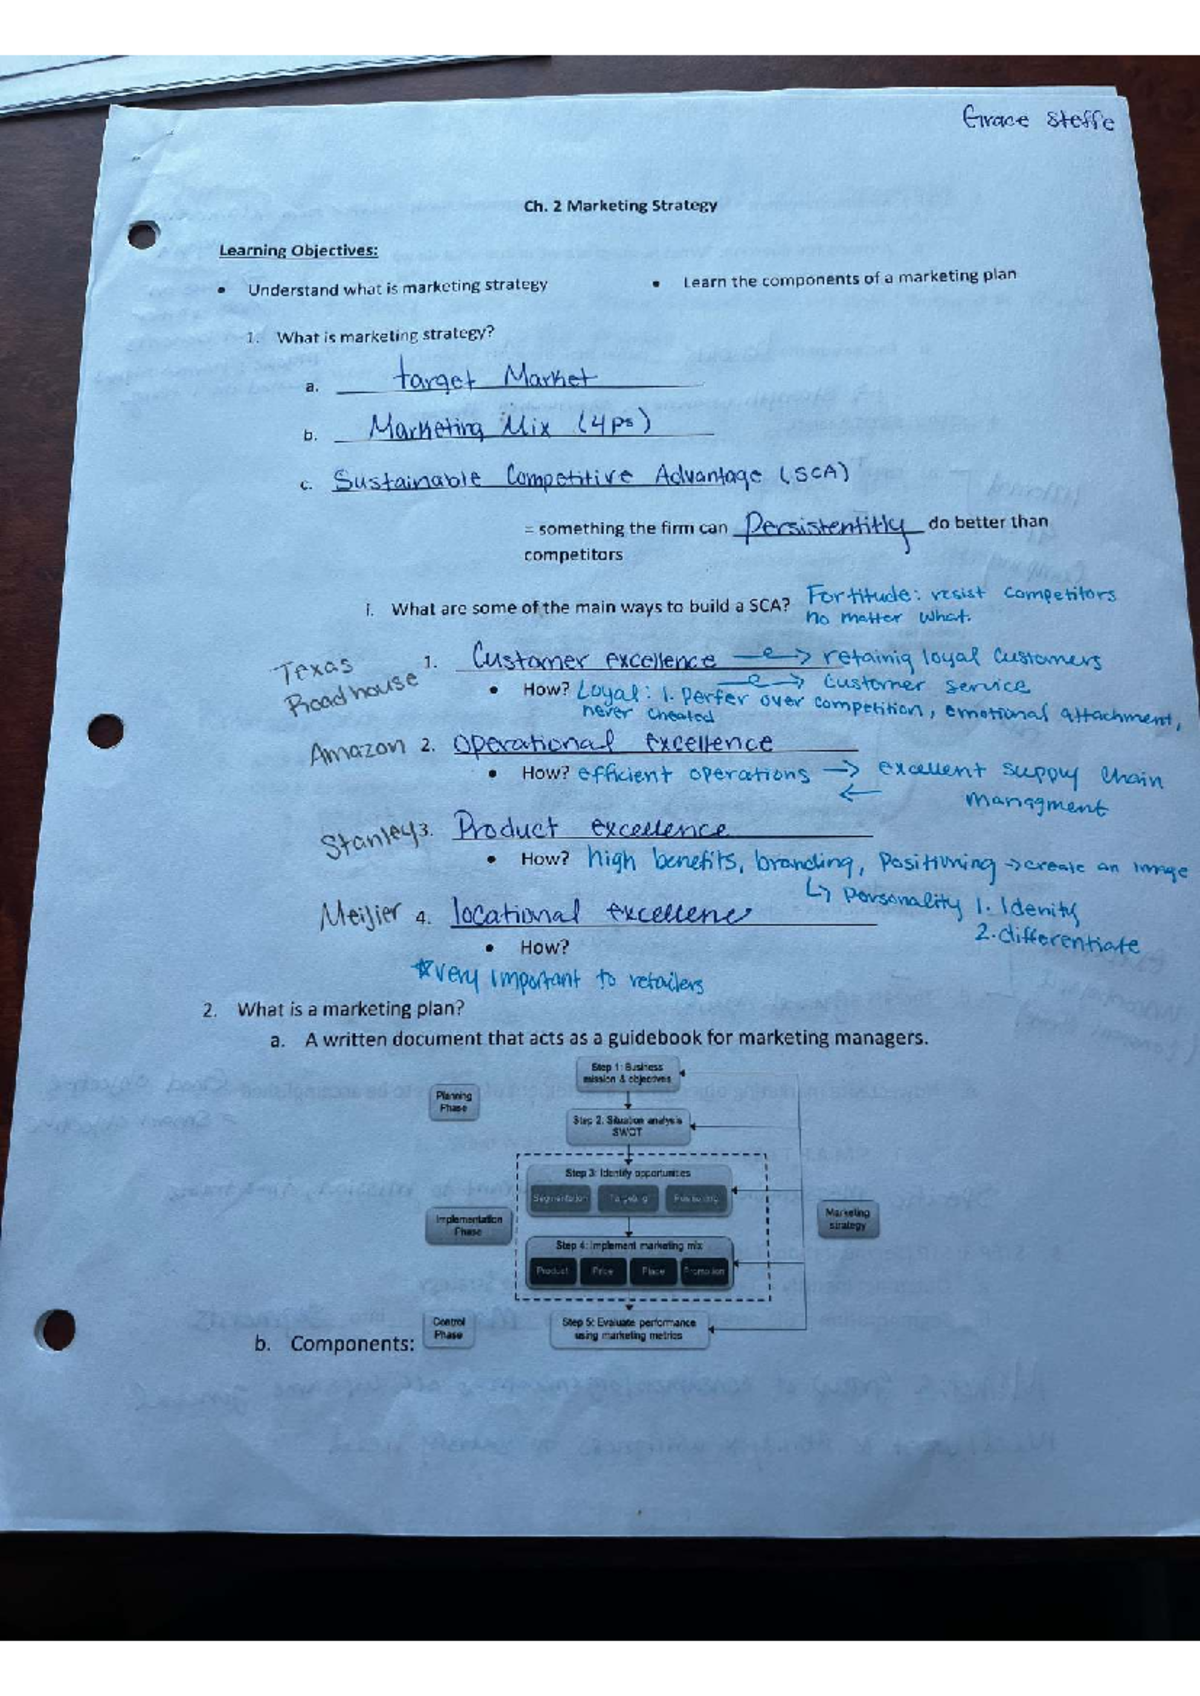 Grace Steffe
Ch. 2 Marketing Strategy
Learning Objectives:
• Understand what is marketing strategy
• Learn the components of a marketing plan
1. What is marketing strategy?
a. target Market
b. Marketing Mix (4ps)
c. Sustainable Competitive Advantage (SCA)
= something the firm can Persistentitly do better than
competitors
i. What are some of the main ways to build a SCA? Fortitude: resist competitors
no matter what.
Texas Roadhouse 1. Customer excellence → retainig loyal customers
→ customer service
• How? Loyal: 1. Perfer over competition, emotional attachment,
never cheated
Amazon 2. Operational excellence
• How? efficient operations → excellent supply chain
← managment
Stanley 3. Product excellence
• How? high benefits, branding, positioning → create an image
↳ personality 1. Idenity
2. differentiate
Meijier 4. locational excellenc
• How?
*very important to retailers
2. What is a marketing plan?
a. A written document that acts as a guidebook for marketing managers.
Step 1: Business
mission & objectives
Planning
Phase
Step 2: Situation analysis
SWOT
Step 3: Identify opportunities
Segmentation Targeting Positioning
Implementation
Phase
Marketing
strategy
Step 4: Implement marketing mix
Product Price Place Promotion
Control
Phase
Step 5: Evaluate performance
using marketing metrics
b. Components: